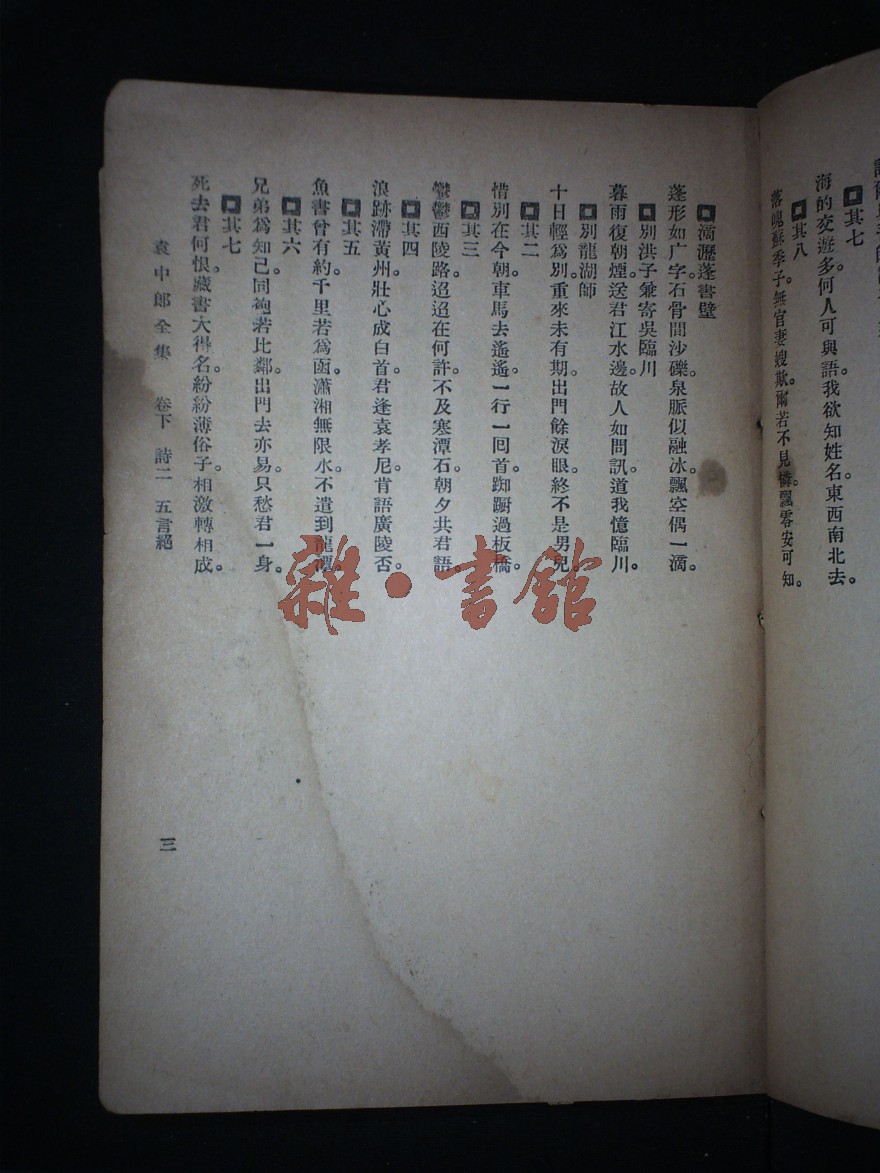 其七
海的交遊多。何人可與語。我欲知姓名。東西南北去。
其八
落魄蘇季子。無官妻嫂欺。爾若不見憐。飄零安可知。
滴瀝蓬書壁
蓬形如广字。石骨間沙礫。泉脈似融冰。飄空偶一滴。
別洪子兼寄吳臨川
暮雨復朝煙。送君江水邊。故人如問訊。道我憶臨川。
別龍湖師
十日輕為別。重來未有期。出門餘淚眼。終不是男兒。
其二
惜別在今朝。車馬去遙遙。一行一回首。踟躕過板橋。
其三
鬱鬱西陵路。迢迢在何許。不及寒潭石。朝夕共君語。
其四
浪跡滯黃州。壯心成白首。君逢袁孝尼。肯語廣陵否。
其五
魚書曾有約。千里若為函。瀟湘無限水。不遣到龍潭。
其六
兄弟為知己。同袍若比鄰。出門去亦易。只愁君一身。
其七
死去君何恨。藏書大得名。紛紛薄俗子。相激轉相成。
袁中郎全集 卷下 詩二 五言絕 三
雜·書館